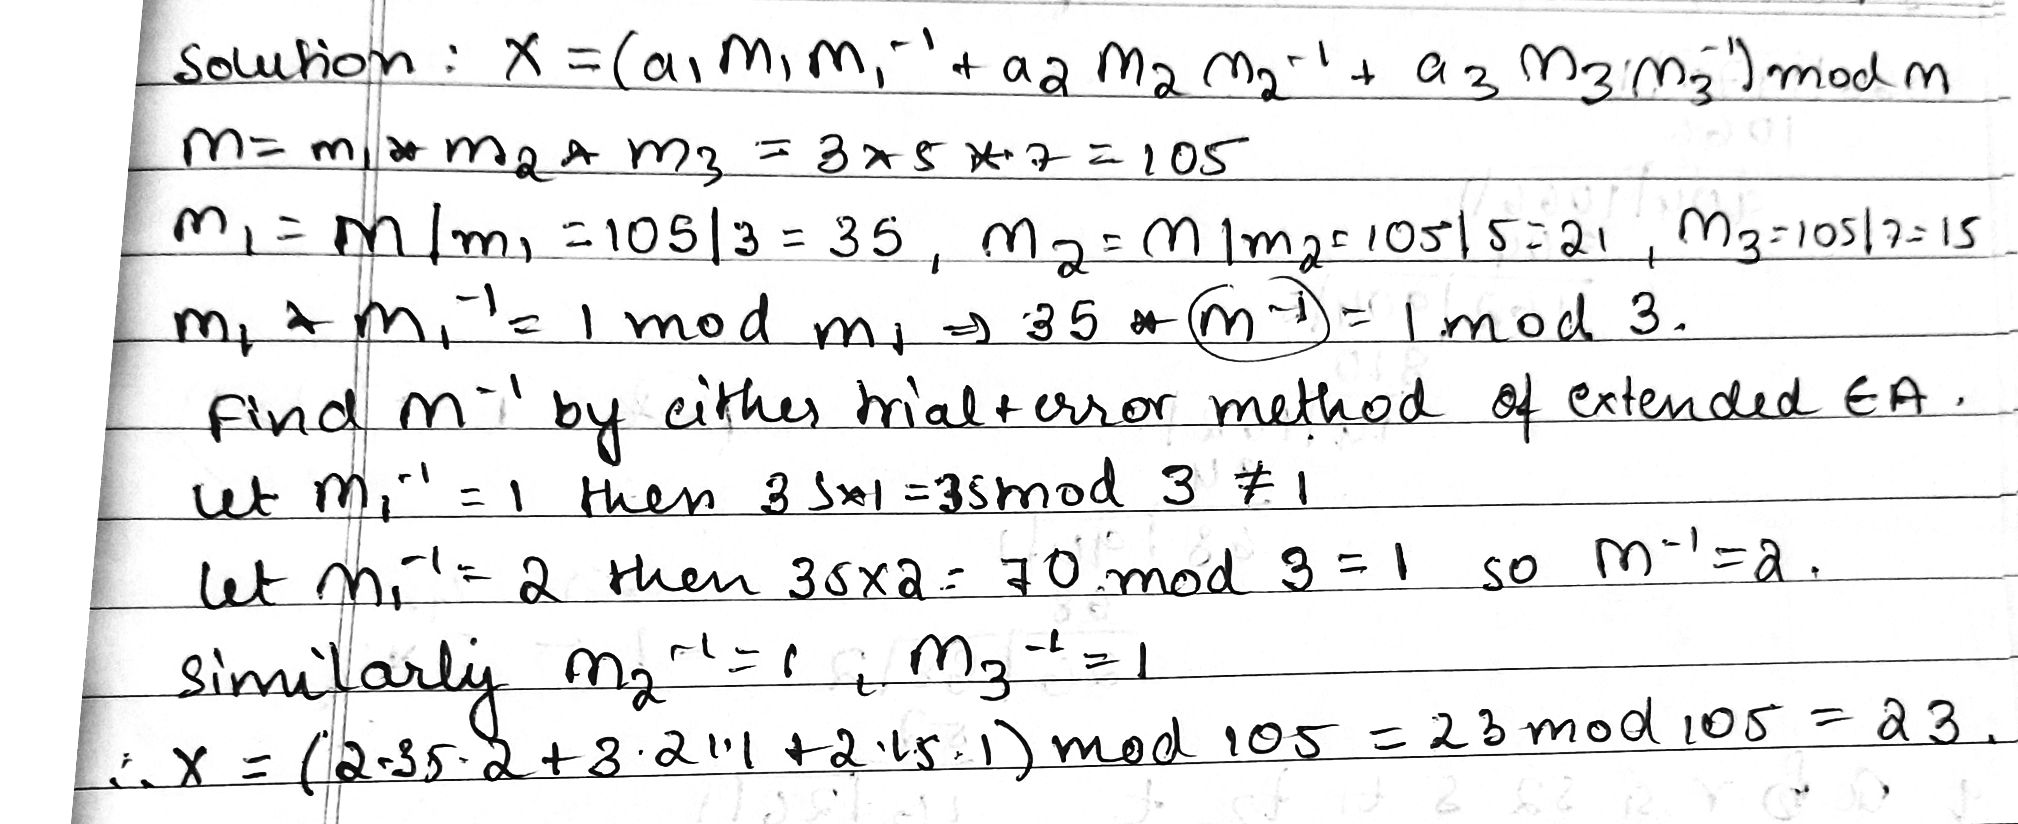 Solution : X = (a1 M1 M1⁻¹ + a2 M2 M2⁻¹ + a3 M3 M3⁻¹) mod M
M = m1 * m2 * m3 = 3 * 5 * 7 = 105
M1 = M/m1 = 105/3 = 35, M2 = M/m2 = 105/5 = 21, M3 = 105/7 = 15
M1 * M1⁻¹ = 1 mod m1 ⇒ 35 * M⁻¹ = 1 mod 3.
Find M⁻¹ by either trial + error method of extended EA.
Let M1⁻¹ = 1 then 35*1 = 35 mod 3 ≠ 1
Let M1⁻¹ = 2 then 35x2 = 70 mod 3 = 1 so M⁻¹ = 2.
Similarly M2⁻¹ = 1 ; M3⁻¹ = 1
∴ X = (2·35·2 + 3·21·1 + 2·15·1) mod 105 = 23 mod 105 = 23.